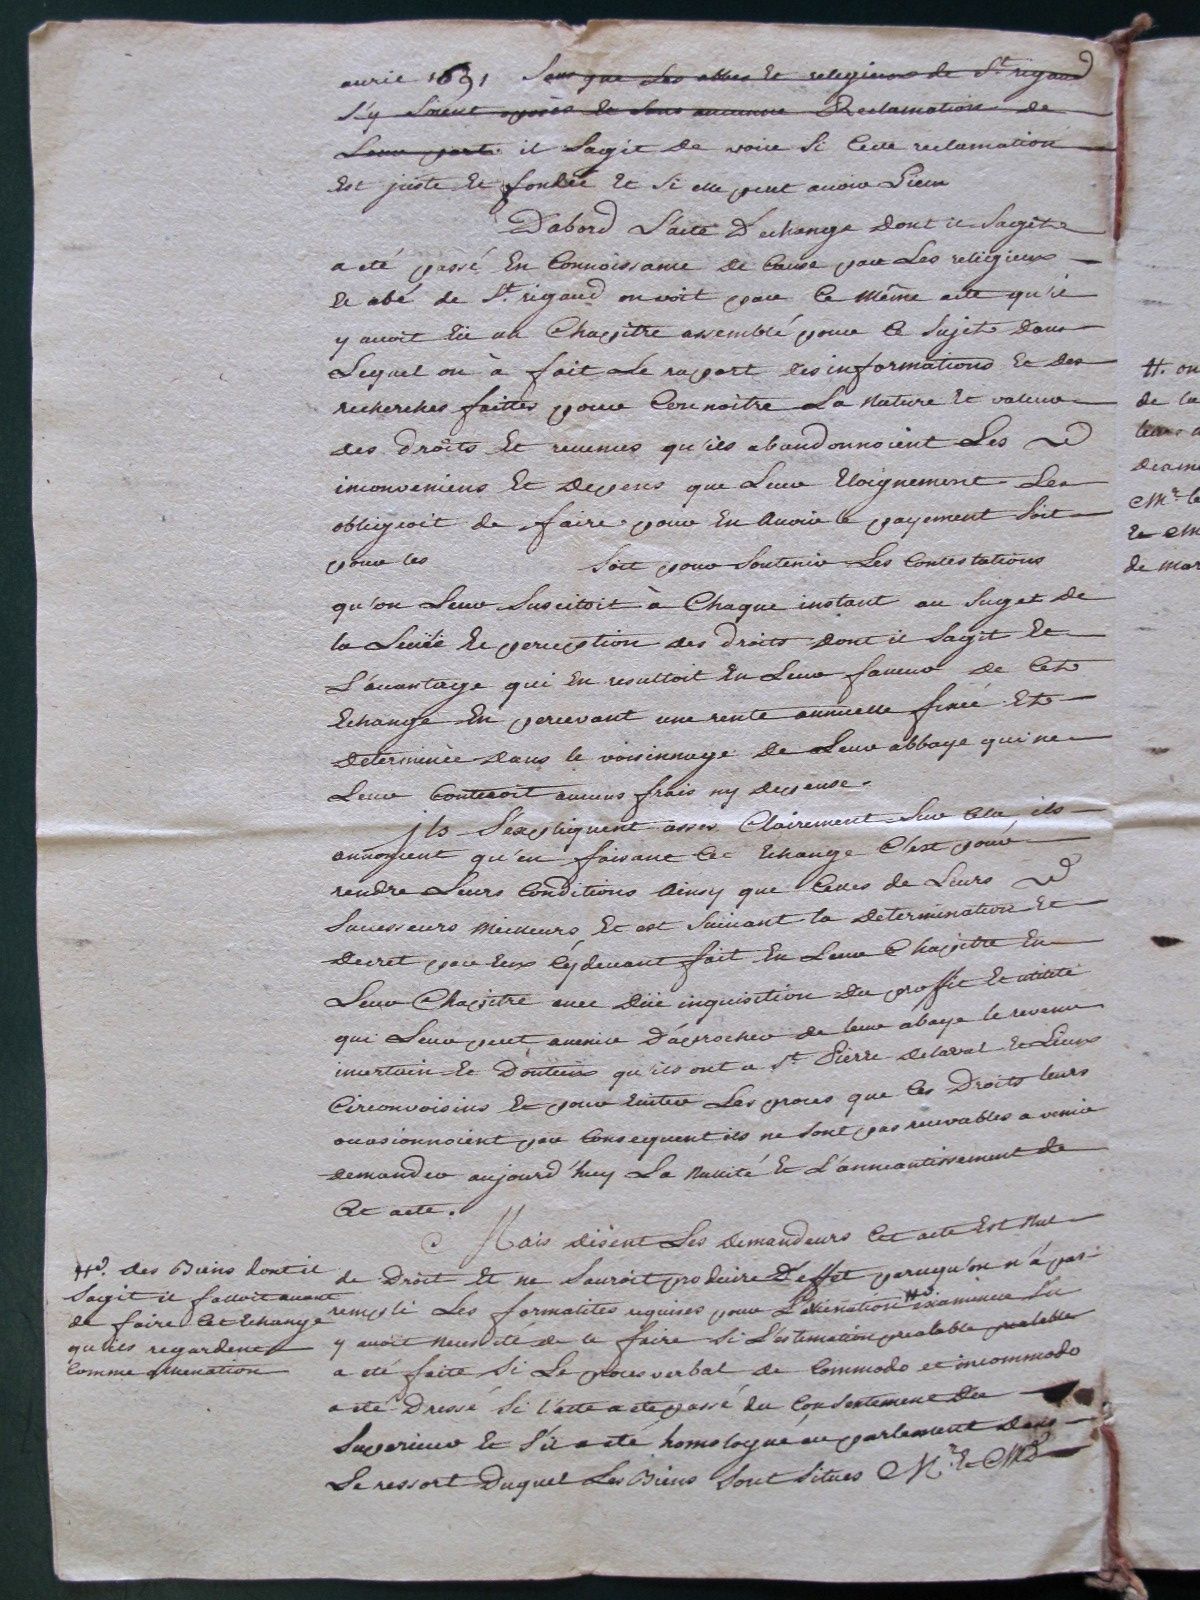 avril 1691 Sans que Les abbes Et religieux de St rigaud
s'y soient oposés Et sans aucunne Reclamation de
Leur part il Sagit de voir Si Cette reclamation
Est juste Et fondée Et Si elle peut avoir Lieu
D'abord L'acte D'echange dont il Sagit
a eté passé En Connoissance De Cause par Les religieux
Et abé de St rigaud on voit par Ce même acte qu'il
y avoit Eü un Chapitre assemblé pour Ce Sujet dans
Lequel on à fait Le raport des informations Et des
recherches faittes pour Connoitre La Nature Et valeur
des droits Et revenus qu'ils abandonnoient Les
inconveniens Et Depens que Leur Eloignement Les
obligeoit de faire pour En Avoir le payement Soit
pour les Soit pour Soutenir Les Contestations
qu'on Leur Suscitoit à Chaque instant au Sujet de
la Levée Et perception des droits dont il Sagit Et
L'avantage qui En resultoit En Leur faveur de Cet
Echange En percevant une rente annuelle fixée Et
determinée dans le voisinnage de Leur abbaye qui ne
Leur Couteroit aucuns frais ny depense.
ils S'expliquent asses Clairement Sur Cela, ils
annoncent qu'en faisant Cet Echange C'est pour
rendre Leurs Conditions Ainsy que Celles de Leurs
Successeurs Meilleurs Et est Suivant la determination Et
decret par Eux Cydevant fait En Leur Chapitre En
Leur Chapitre avec Düe inquisition du proffit Et utilité
qui Leur peut avenir D'aprocher de leur abaye le revenu
incertain Et Douteux qu'ils ont a St Pierre delaval Et Lieux
Circonvoisins Et pour Eviter Les proces que Ces Droits leurs
occasionnoient par Consequent ils ne Sont pas recevables a venir
demander aujourd'huy La Nullité Et L'anneantissement de
Cet acte.
Mais disent Les Demandeurs Cet acte Est Nul
de Droit Et ne Sauroit produire D'effet parcequ'on n'à pas
rempli Les formalites requises pour L'alienation #d. examiner S'il
y avoit Necessité de le faire Si L'estimation prealable prealable
a eté faite Si Le proces verbal de Commodo et incommodo
a eté Dressé Si l'acte a eté passé du Consentement du
Superieur Et S'il a eté homologué au parlement dans
Le ressort Duquel Les Biens Sont Situés Mr Et Md
#d. des Biens dont il
Sagit il falloit avant
de faire Cet Echange
qu'ils regardent
Comme alienation
#. on
de la
leurs
deame
Mr le
Et M
de mar